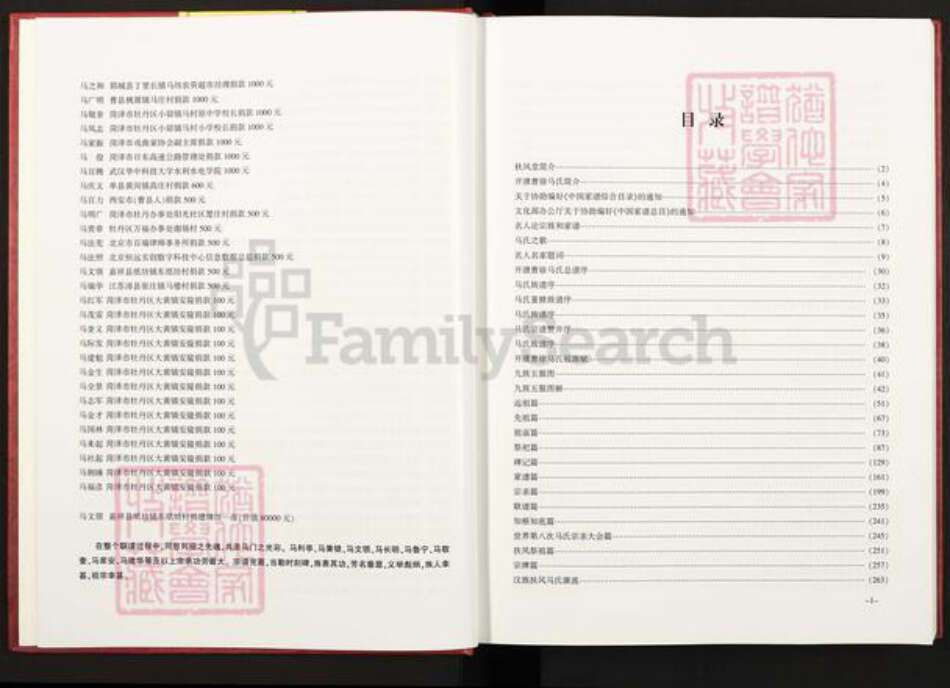 马之和 郓城县丁里长镇马坊农贸超市经理捐款 1000 元
马广明 曹县桃源镇马庄村捐款 1000 元
马敬奎 菏泽市牡丹区小留镇马村原中学校长捐款 1000 元
马凤志 菏泽市牡丹区小留镇马村小学校长捐款 1000 元
马家振 菏泽市戏曲家协会副主席捐款 1000 元
马 俊 菏泽市日东高速公路管理处捐款 1000 元
武汉华中科技大学水利水电学院 1000 元
马庆文 单县黄岗镇高庄村捐款 600 元
马百力 西安市(曹县人)捐款 500 元
马明广 菏泽市牡丹办事处阳光社区
捐款 500 元
牡丹区万福办事处
村 500 元
马法宪 北京市百瑞律师事务所捐款 500 元
北京恒远实创数字科技中心信息数据总监捐款 500 元
马文强 嘉祥县纸坊镇东纸坊村捐款 500 元
江苏沛县张庄镇马楼村捐款 500 元
马红军 菏泽市牡丹区大黄镇安陵捐款 100 元
马茂雷 菏泽市牡丹区大黄镇安陵捐款 100 元
马奎文 菏泽市牡丹区大黄镇安陵捐款 100 元
马际发 菏泽市牡丹区大黄镇安陵捐款 100 元
马建魁 菏泽市牡丹区大黄镇安陵捐款 100 元
马金生 菏泽市牡丹区大黄镇安陵捐款 100 元
马全景 菏泽市牡丹区大黄镇安陵捐款 100 元
马志军 菏泽市牡丹区大黄镇安陵捐款 100 元
马金才 菏泽市牡丹区大黄镇安陵捐款 100 元
马国林 菏泽市牡丹区大黄镇安陵捐款 100 元
马来起 菏泽市牡丹区大黄镇安陵捐款 100 元
马社起 菏泽市牡丹区大黄镇安陵捐款 100 元
菏泽市牡丹区大黄镇安陵捐款 100 元
马福彦 菏泽市牡丹区大黄镇安陵捐款 100 元
马文强 嘉祥县纸坊镇东纸坊村捐建牌坊一座(价值 60000 元)
在整个联谱过程中,同慰列祖之先魂,共添马门之光彩。马利亭,马秉银,马文强,马长明,马鲁宁,马敬
奎,马家安,马建华等及以上宗亲功劳最大。宗谱竞蒇,当勒时刻碑,推表其功,芳名垂显,义举彪炳,族人幸
甚,祖宗幸甚。
目 录
扶风堂简介 (2)
开濮曹徐马氏简介 (4)
关于协助编好《中国家谱综合目录》的通知 (5)
文化部办公厅关于协助编好《中国家谱总目》的通知 (6)
名人论宗族和家谱 (7)
马氏之歌 (8)
名人名家题词 (9)
开濮曹徐马氏总谱序 (30)
马氏族谱序 (32)
马氏重修族谱序 (33)
马氏族谱序 (35)
马氏宗谱赞并序 (36)
马氏族谱序 (38)
开濮曹徐马氏祖源赋 (40)
九族五服图 (41)
九族五服图解 (42)
远祖篇 (51)
先祖篇 (67)
祖庙篇 (73)
祭祀篇 (87)
碑记篇 (129)
家谱篇 (161)
宗亲篇 (199)
联谱篇 (235)
知根知底篇 (241)
世界第八次马氏宗亲大会篇 (245)
扶风祭祖篇 (251)
宗牌篇 (257)
汉族扶风马氏源流 (263)
–1–
FamilySearch